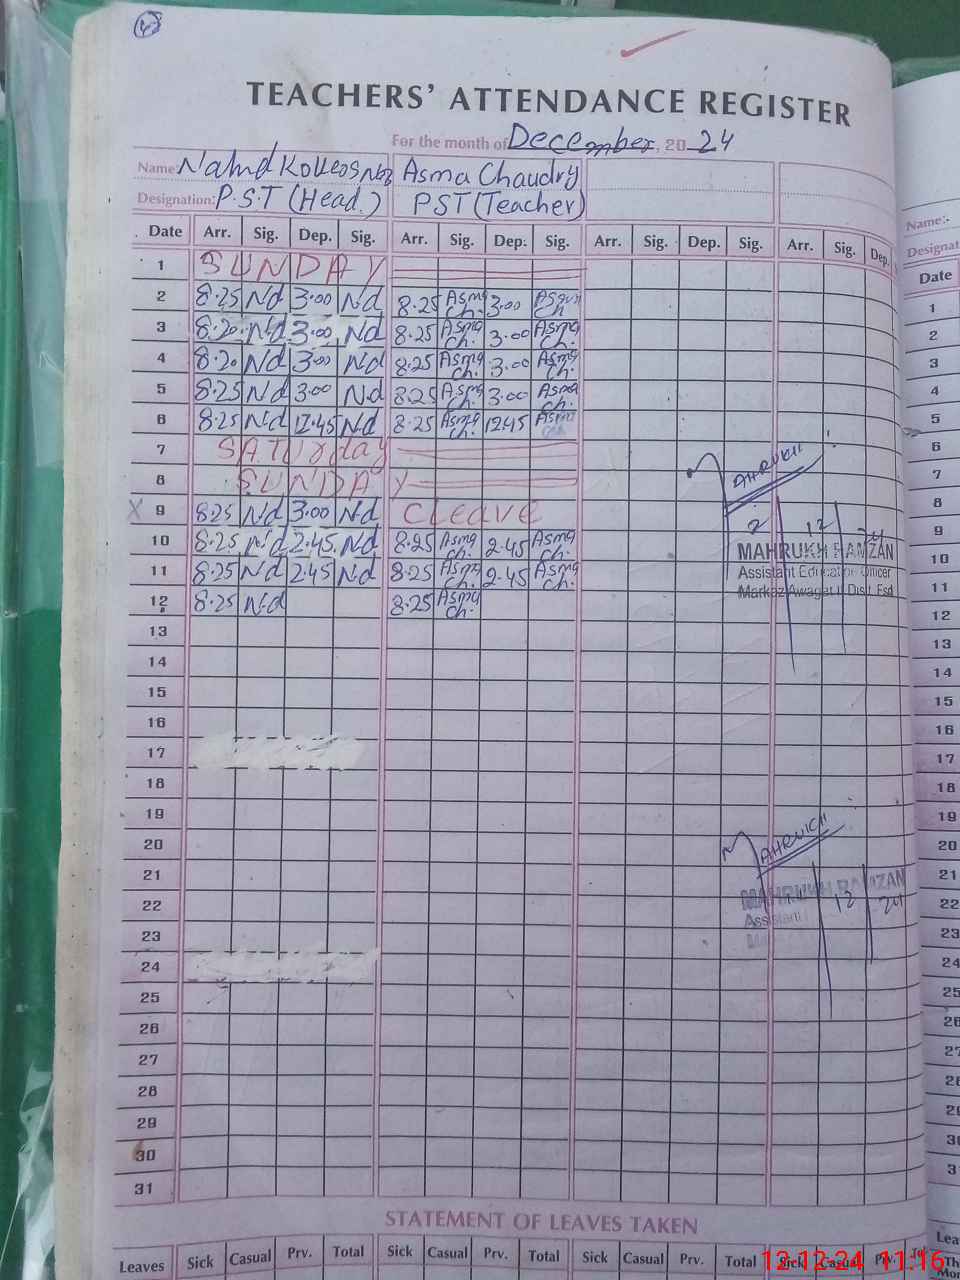 TEACHERS' ATTENDANCE REGISTER
For the month of December, 2024
Name: Asma Chaudry
Designation: P.S.T (Head) PST (Teacher)
Date Arr. Sig. Dep. Sig. Arr. Sig. Dep. Sig. Arr. Sig. Dep. Sig. Arr. Sig. Dep.
1 SUNDAY
2 8.25 Nd 3.00 Nd 8.25 Asma Ch. 3.00 Ch
3 8.20 Nd 3.00 Nd 8.25 Asma Ch. 3.00 Asma Ch.
4 8.20 Nd 3.00 Nd 8.25 Asma Ch. 3.00 Asma Ch.
5 8.25 Nd 3.00 Nd 8.25 Asma Ch. 3.00 Asma Ch.
6 8.25 Nd 12.45 Nd 8.25 Asma Ch. 12.45 Asma
7 SATUrday
8 SUNDAY
X 9 8.25 Nd 3.00 Nd Cleave
10 8.25 Nd 2.45 Nd 8.25 Asma Ch. 2.45 Asma Ch.
11 8.25 Nd 2.45 Nd 8.25 Asma Ch. 2.45 Asma Ch.
12 8.25 Nd 8.25 Asma Ch.
13
14
15
16
17
18
19
20
21
22
23
24
25
26
27
28
29
30
31
MAHRUKH
2 12 24
MAHRUKH RAMZAN
Assistant Education Officer
Markaz Awagat Distt Fsd
MAHRUKH
MAHRUKH RAMZAN
12 24
STATEMENT OF LEAVES TAKEN
Leaves Sick Casual Prv. Total Sick Casual Prv. Total Sick Casual Prv. Total Sick Casual Prv.
Name:-
Designat
Date
1
2
3
4
5
6
7
8
9
10
11
12
13
14
15
16
17
18
19
20
21
22
23
24
25
26
27
28
29
30
31
12-12-24 11:16